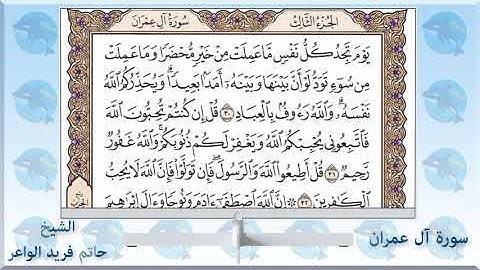 الجُزْءُ الثَّالِثُ سُورَةُ آلِ عِمْرَانَ
يَوْمَ تَجِدُ كُلُّ نَفْسٍ مَّا عَمِلَتْ مِنْ خَيْرٍ مُّحْضَرًا وَمَا عَمِلَتْ
مِن سُوٓءٍ تَوَدُّ لَوْ أَنَّ بَيْنَهَا وَبَيْنَهُۥٓ أَمَدَۢا بَعِيدًاۗ وَيُحَذِّرُكُمُ ٱللَّهُ
نَفْسَهُۥۗ وَٱللَّهُ رَءُوفُۢ بِٱلْعِبَادِ ٣٠ قُلْ إِن كُنتُمْ تُحِبُّونَ ٱللَّهَ
فَٱتَّبِعُونِي يُحْبِبْكُمُ ٱللَّهُ وَيَغْفِرْ لَكُمْ ذُنُوبَكُمْۚ وَٱللَّهُ غَفُورٌ
رَّحِيمٌ ٣١ قُلْ أَطِيعُوا۟ ٱللَّهَ وَٱلرَّسُولَۖ فَإِن تَوَلَّوْا۟ فَإِنَّ ٱللَّهَ لَا يُحِبُّ
ٱلْكَٰفِرِينَ ٣٢ ۞ إِنَّ ٱللَّهَ ٱصْطَفَىٰٓ ءَادَمَ وَنُوحًا وَءَالَ إِبْرَٰهِيمَ
سورة آل عمران
الشيخ
حاتم فريد الواعر